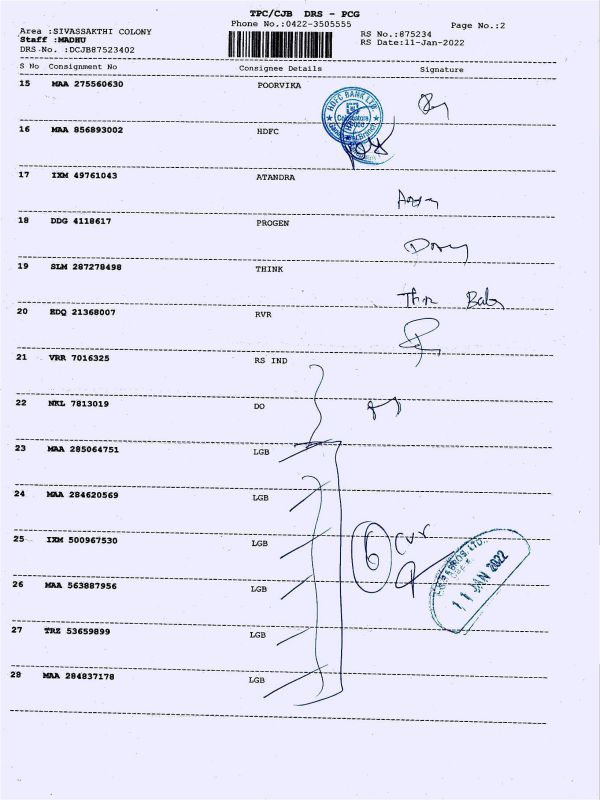 TPC/CJB DRS - PCG
Phone No.:0422-3505555 Page No.:2
Area :SIVASSAKTHI COLONY
Staff :MADHU
DRS-No. :DCJB87523402
RS No.:875234
RS Date:11-Jan-2022
S No Consignment No Consignee Details Signature
15 MAA 275560630 POORVIKA
HDFC BANK LTD.
Coimbatore
16 MAA 856893002 HDFC
17 IXM 49761043 ATANDRA
18 DDG 4118617 PROGEN
19 SLM 287278498 THINK
20 EDQ 21368007 RVR
21 VRR 7016325 RS IND
22 NKL 7813019 DO
23 MAA 285064751 LGB
24 MAA 284620569 LGB
25 IXM 500967530 LGB
6
11 JAN 2022
26 MAA 563887956 LGB
27 TRZ 53659899 LGB
28 MAA 284837178 LGB